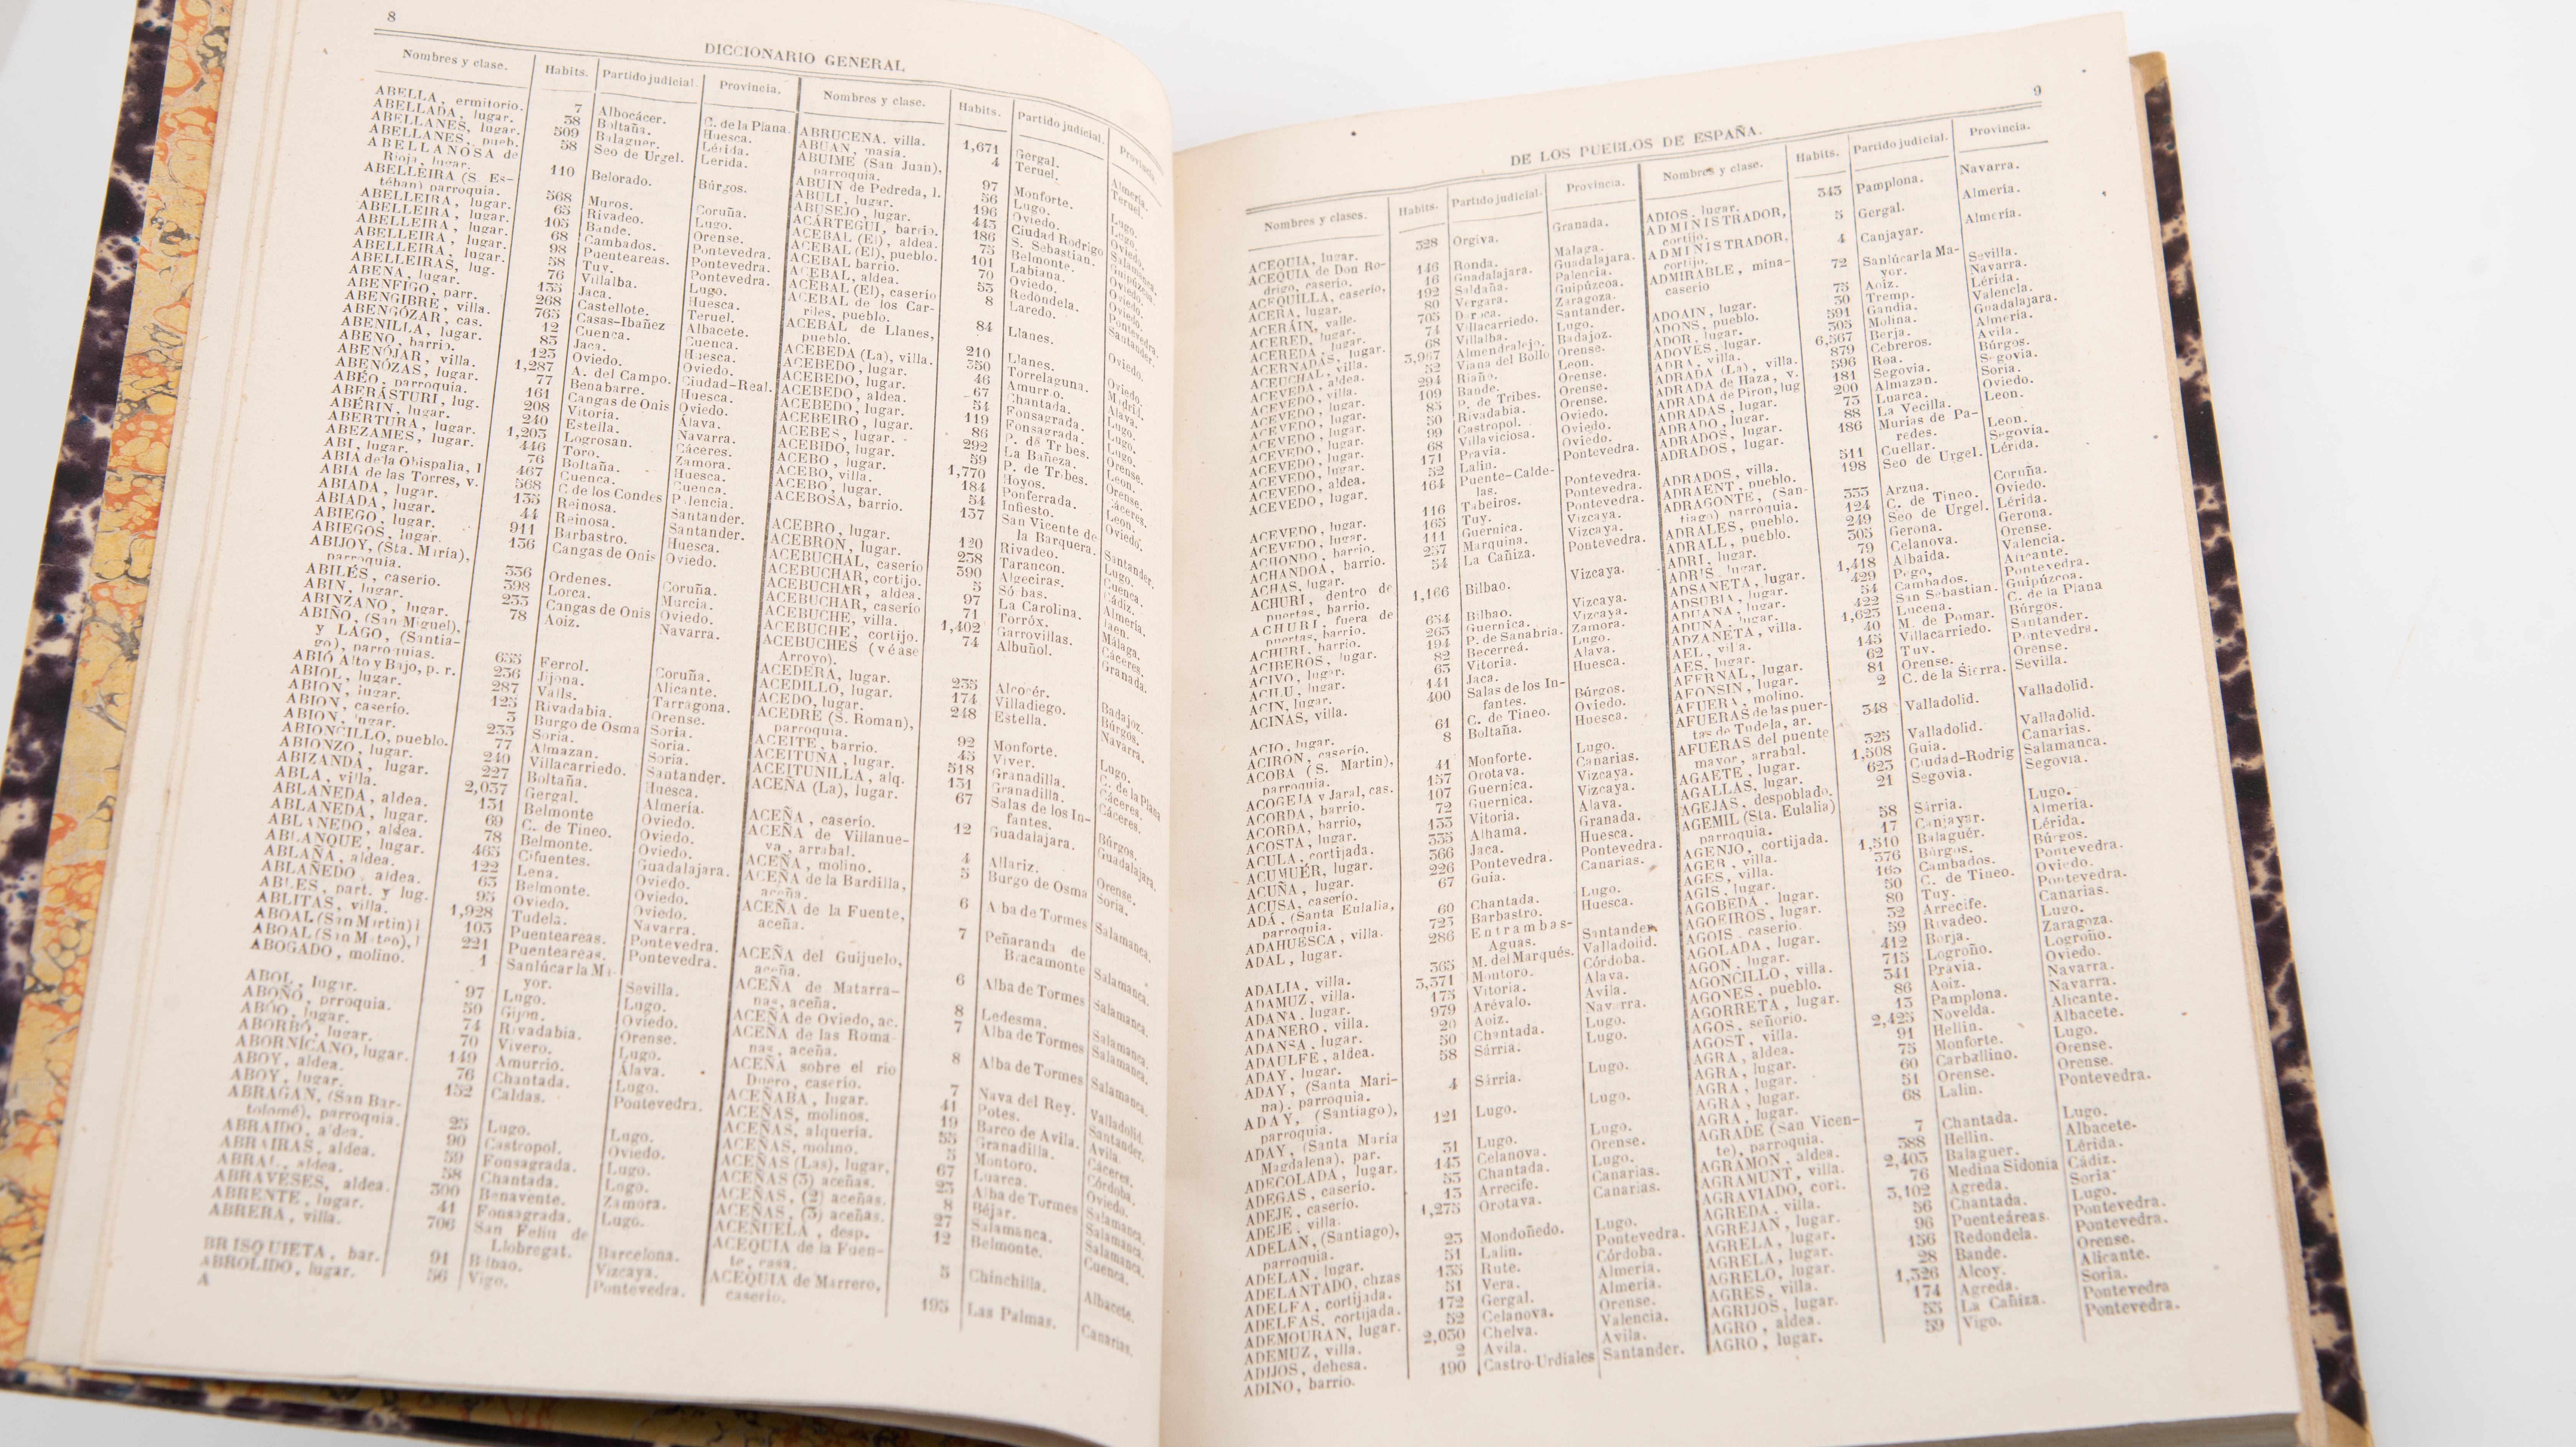 8
DICCIONARIO GENERAL
Nombres y clase. Habits. Partido judicial. Provincia.
ABELLA, ermitorio. 7 Albocácer. C. de la Plana.
ABELLADA, lugar. 38 Boltaña. Huesca.
ABELLANES, lugar. 509 Balaguer. Lérida.
ABELLANES, pueb. 58 Seo de Urgel. Lerida.
ABELLANOSA de
Rioja, lugar. 110 Belorado. Búrgos.
ABELLEIRA (S. Es-
téban) parroquia. 568 Muros. Coruña.
ABELLEIRA, lugar. 63 Rivadeo. Lugo.
ABELLEIRA, lugar. 105 Bande. Orense.
ABELLEIRA, lugar. 68 Cambados. Pontevedra.
ABELLEIRA, lugar. 98 Puenteareas. Pontevedra.
ABELLEIRA, lugar. 58 Tuy. Pontevedra.
ABELLEIRAS, lug. 76 Villalba. Lugo.
ABENA, lugar. 135 Jaca. Huesca.
ABENFIGO, parr. 268 Castellote. Teruel.
ABENGIBRE, villa. 765 Casas-Ibañez Albacete.
ABENGÓZAR, cas. 12 Cuenca. Cuenca.
ABENILLA, lugar. 83 Jaca. Huesca.
ABENO, barrio. 123 Oviedo. Oviedo.
ABENÓJAR, villa. 1,287 A. del Campo. Ciudad-Real.
ABENÓZAS, lugar. 77 Benabarre. Huesca.
ABÉO, parroquia. 161 Cangas de Onis Oviedo.
ABERÁSTURI, lug. 208 Vitoria. Álava.
ABÉRIN, lugar. 240 Estella. Navarra.
ABERTURA, lugar. 1,203 Logrosan. Cáceres.
ABEZAMES, lugar. 446 Toro. Zamora.
ABI, lugar. 76 Boltaña. Huesca.
ABIA de la Obispalia, l 467 Cuenca. Cuenca.
ABIA de las Torres, v. 568 C. de los Condes Palencia.
ABIADA, lugar. 135 Reinosa. Santander.
ABIADA, lugar. 44 Reinosa. Santander.
ABIEGO, lugar. 911 Barbastro. Huesca.
ABIEGOS, lugar. 136 Cangas de Onis Oviedo.
ABIJOY, (Sta. María),
parroquia. 336 Ordenes. Coruña.
ABILÉS, caserio. 398 Lorca. Murcia.
ABIN, lugar. 233 Cangas de Onis Oviedo.
ABINZANO, lugar. 78 Aoiz. Navarra.
ABIÑO, (San Miguel),
y LAGO, (Santia-
go), parroquias. 655 Ferrol. Coruña.
ABIÓ Alto y Bajo, p. r. 236 Jijona. Alicante.
ABIOL, lugar. 287 Valls. Tarragona.
ABION, lugar. 125 Rivadabia. Orense.
ABION, caserío. 3 Burgo de Osma Soria.
ABION, lugar. 233 Soria. Soria.
ABIONCILLO, pueblo. 77 Almazan. Soria.
ABIONZO, lugar. 240 Villacarriedo. Santander.
ABIZANDA, lugar. 227 Boltaña. Huesca.
ABLA, villa. 2,037 Gergal. Almería.
ABLANEDA, aldea. 131 Belmonte Oviedo.
ABLANEDA, lugar. 69 C. de Tineo. Oviedo.
ABLANEDO, aldea. 78 Belmonte. Oviedo.
ABLANQUE, lugar. 465 Cifuentes. Guadalajara.
ABLAÑA, aldea. 122 Lena. Oviedo.
ABLAÑEDO, aldea. 63 Belmonte. Oviedo.
ABLES, part. y lug. 95 Oviedo. Oviedo.
ABLITAS, villa. 1,928 Tudela. Navarra.
ABOAL (San Martin) l 103 Puenteareas. Pontevedra.
ABOAL (San Mateo), l 221 Puenteareas. Pontevedra.
ABOGADO, molino. 1 Sanlúcar la Ma-
yor. Sevilla.
ABOL, lugar. 97 Lugo. Lugo.
ABOÑO, prroquia. 50 Gijon. Oviedo.
ABÓO, lugar. 74 Rivadabia. Orense.
ABORBÓ, lugar. 70 Vivero. Lugo.
ABORNÍCANO, lugar. 149 Amurrio. Álava.
ABOY, aldea. 76 Chantada. Lugo.
ABOY, lugar. 152 Caldas. Pontevedra.
ABRAGAN, (San Bar-
tolomé), parroquia. 25 Lugo. Lugo.
ABRAIDO, aldea. 90 Castropol. Oviedo.
ABRAIRAS, aldea. 59 Fonsagrada. Lugo.
ABRAL, aldea. 58 Chantada. Lugo.
ABRAVESES, aldea. 300 Benavente. Zamora.
ABRENTE, lugar. 41 Fonsagrada. Lugo.
ABRERA, villa. 706 San Feliu de
Llobregat. Barcelona.
BRISQUIETA, bar. 91 Bilbao. Vizcaya.
ABROLIDO, lugar. 56 Vigo. Pontevedra.
A
Nombres y clase. Habits. Partido judicial. Provincia.
ABRUCENA, villa. 1,671 Gergal. Almería.
ABUAN, masia. 4 Teruel. Teruel.
ABUIME (San Juan),
parroquia. 97 Monforte. Lugo.
ABUIN de Pedreda, l. 56 Lugo. Lugo.
ABULI, lugar. 196 Oviedo. Oviedo.
ABUSEJO, lugar. 443 Ciudad Rodrigo Salamanca.
ACÁRTEGUI, barrio. 186 S. Sebastian. Guipúzcoa.
ACEBAL (El), aldea. 75 Belmonte. Oviedo.
ACEBAL (El), pueblo. 101 Labiana. Oviedo.
ACEBAL barrio. 70 Oviedo. Oviedo.
ACEBAL, aldea. 53 Redondela. Pontevedra.
ACEBAL (El), caserío 8 Laredo. Santander.
ACEBAL de los Car-
riles, pueblo. 84 Llanes. Oviedo.
ACEBAL de Llanes,
pueblo. 210 Llanes. Oviedo.
ACEBEDA (La), villa. 350 Torrelaguna. Madrid.
ACEBEDO, lugar. 46 Amurrio. Álava.
ACEBEDO, lugar. 67 Chantada. Lugo.
ACEBEDO, aldea. 54 Fonsagrada. Lugo.
ACEBEDO, lugar. 119 Fonsagrada. Lugo.
ACEBEIRO, lugar. 86 P. de Tribes. Orense.
ACEBES, lugar. 292 La Bañeza. Leon.
ACEBIDO, lugar. 59 P. de Tribes. Orense.
ACEBO, villa. 1,770 Hoyos. Cáceres.
ACEBO, lugar. 184 Ponferrada. Leon.
ACEBO, lugar. 54 Infiesto. Oviedo.
ACEBOSA, barrio. 137 San Vicente de
la Barquera. Santander.
ACEBRO, lugar. 120 Rivadeo. Lugo.
ACEBRON, lugar. 238 Tarancon. Cuenca.
ACEBUCHAL, caserío 390 Algeciras. Cádiz.
ACEBUCHAR, cortijo. 5 Sórbas. Almería.
ACEBUCHAR, aldea. 97 La Carolina. Jaen.
ACEBUCHAR, caserío 71 Torróx. Málaga.
ACEBUCHE, villa. 1,402 Garrovillas. Cáceres.
ACEBUCHE, cortijo. 74 Albuñol. Granada.
ACEBUCHES (véase
Arroyo).
ACEDERA, lugar. 235 Badajoz.
ACEDILLO, lugar. 174 Villadiego. Búrgos.
ACEDO, lugar. 248 Estella. Navarra.
ACEDRE (S. Roman),
parroquia. 92 Monforte. Lugo.
ACEITE, barrio. 45 Viver. C. de la Plana
ACEITUÑA, lugar. 518 Granadilla. Cáceres.
ACEITUNILLA, alq. 131 Granadilla. Cáceres.
ACEÑA (La), lugar. 67 Salas de los In-
fantes. Búrgos.
ACEÑA, caserío. 12 Guadalajara. Guadalajara.
ACEÑA de Villanue-
va, arrabal. 4 Allariz. Orense.
ACEÑA, molino. 5 Burgo de Osma Soria.
ACEÑA de la Bardilla,
aceña. 6 Alba de Tormes Salamanca.
ACEÑA de la Fuente,
aceña. 7 Peñaranda de
Bracamonte Salamanca.
ACEÑA del Guijuelo,
aceña. 6 Alba de Tormes Salamanca.
ACEÑA de Matarra-
nas, aceña. 8 Ledesma. Salamanca.
ACEÑA de Oviedo, ac. 7 Alba de Tormes Salamanca.
ACEÑA de las Roma-
nas, aceña. 8 Alba de Tormes Salamanca.
ACEÑA sobre el rio
Duero, caserío. 7 Nava del Rey. Valladolid.
ACEÑABA, lugar. 41 Potes. Santander.
ACEÑAS, molinos. 19 Barco de Avila. Ávila.
ACEÑAS, alquería. 55 Granadilla. Cáceres.
ACEÑAS, molino. 5 Montoro. Córdoba.
ACEÑAS (Las), lugar. 67 Luarca. Oviedo.
ACEÑAS (3) aceñas. 23 Alba de Tormes Salamanca.
ACEÑAS, (2) aceñas. 8 Béjar. Salamanca.
ACEÑAS, (3) aceñas. 27 Salamanca. Salamanca.
ACEÑUELA, desp. 12 Belmonte. Cuenca.
ACEQUIA de la Fuen-
te, casa. 5 Chinchilla. Albacete.
ACEQUIA de Marrero,
caserío. 195 Las Palmas. Canarias.
9
DE LOS PUEBLOS DE ESPAÑA.
Nombres y clases. Habits. Partido judicial. Provincia.
ACEQUIA, lugar. 328 Orgiva. Granada.
ACEQUIA de Don Ro-
drigo, caserío. 146 Ronda. Málaga.
ACEQUILLA, caserío, 16 Guadalajara. Guadalajara.
ACERA, lugar. 192 Saldaña. Palencia.
ACERÁIN, valle. 80 Vergara. Guipúzcoa.
ACERED, lugar. 705 Daroca. Zaragoza.
ACEREDA, lugar. 74 Villacarriedo. Santander.
ACERNADAS, lugar. 68 Villalba. Lugo.
ACEUCHAL, villa. 3,967 Almendralejo. Badajoz.
ACEVEDA, aldea. 52 Viana del Bollo Orense.
ACEVEDO, villa. 294 Riaño. Leon.
ACEVEDO, lugar. 109 Bande. Orense.
ACEVEDO, lugar. 85 P. de Tribes. Orense.
ACEVEDO, lugar. 50 Rivadabia. Orense.
ACEVEDO, lugar. 99 Castropol. Oviedo.
ACEVEDO, lugar. 68 Villaviciosa. Oviedo.
ACEVEDO, lugar. 171 Pravia. Oviedo.
ACEVEDO, aldea. 52 Lalin. Pontevedra.
ACEVEDO, lugar. 164 Puente-Calde-
las. Pontevedra.
ACEVEDO, lugar. 116 Tabeiros. Pontevedra.
ACEVEDO, lugar. 165 Tuy. Pontevedra.
ACHONDO, barrio. 111 Guernica. Vizcaya.
ACHANDOA, barrio. 257 Marquina. Vizcaya.
ACHAS, lugar. 54 La Cañiza. Pontevedra.
ACHURI, dentro de
puertas, barrio. 1,166 Bilbao. Vizcaya.
ACHURI, fuera de
puertas, barrio. 654 Bilbao. Vizcaya.
ACHURI, barrio. 263 Guernica. Vizcaya.
ACIBEROS, lugar. 194 P. de Sanabria. Zamora.
ACIVO, lugar. 82 Becerreá. Lugo.
ACILU, lugar. 63 Vitoria. Alava.
ACIN, lugar. 141 Jaca. Huesca.
ACINAS, villa. 400 Salas de los In-
fantes. Búrgos.
ACIO, lugar. 61 C. de Tineo. Oviedo.
ACIRON, caserio. 8 Boltaña. Huesca.
ACOBA (S. Martin),
parroquia. 41 Monforte. Lugo.
ACOGEJA y Jaral, cas. 157 Orotava. Canarias.
ACORDA, barrio. 107 Guernica. Vizcaya.
ACORDA, barrio, 72 Guernica. Vizcaya.
ACOSTA, lugar. 133 Vitoria. Alava.
ACULA, cortijada. 335 Alhama. Granada.
ACUMUÉR, lugar. 366 Jaca. Huesca.
ACUÑA, lugar. 226 Pontevedra. Pontevedra.
ACUSA, caserío. 67 Guia. Canarias.
ADÁ, (Santa Eulalia,
parroquia. 60 Chantada. Lugo.
ADAHUESCA, villa. 723 Barbastro. Huesca.
ADAL, lugar. 286 Entrambas-
Aguas. Santander.
ADALIA, villa. 365 M. del Marqués. Valladolid.
ADAMUZ, villa. 3,371 Montoro. Córdoba.
ADANA, lugar. 175 Vitoria. Alava.
ADANERO, villa. 979 Arévalo. Avila.
ADANSA, lugar. 20 Aoiz. Navarra.
ADAULFE, aldea. 50 Chantada. Lugo.
ADAY, lugar. 58 Sárria. Lugo.
ADAY, (Santa Mari-
na), parroquia. 4 Sárria. Lugo.
ADAY, (Santiago),
parroquia. 121 Lugo. Lugo.
ADAY, (Santa Maria
Magdalena), par. 31 Lugo. Lugo.
ADECOLADA, lugar. 143 Celanova. Orense.
ADEGAS, caserío. 53 Chantada. Lugo.
ADEJE, caserío. 13 Arrecife. Canarias.
ADEJE, villa. 1,275 Orotava. Canarias.
ADELAN, (Santiago),
parroquia. 23 Mondoñedo. Lugo.
ADELAN, lugar. 51 Lalin. Pontevedra.
ADELANTADO, chzas 135 Rute. Córdoba.
ADELFA, cortijada. 51 Vera. Almeria.
ADELFAS, cortijada. 172 Gergal. Almeria.
ADEMOURAN, lugar. 52 Celanova. Orense.
ADEMUZ, villa. 2,030 Chelva. Valencia.
ADIJOS, dehesa. 2 Avila. Avila.
ADINO, barrio. 190 Castro-Urdiales Santander.
Nombres y clase. Habits. Partido judicial. Provincia.
ADIOS, lugar. 343 Pamplona. Navarra.
ADMINISTRADOR,
cortijo. 5 Gergal. Almería.
ADMINISTRADOR,
cortijo. 4 Canjayar. Almería.
ADMIRABLE, mina-
caserio 72 Sanlúcar la Ma-
yor. Sevilla.
ADOAIN, lugar. 75 Aoiz. Navarra.
ADONS, pueblo. 30 Tremp. Lérida.
ADOR, lugar. 591 Gandia. Valencia.
ADOVES, lugar. 305 Molina. Guadalajara.
ADRA, villa. 6,567 Berja. Almeria.
ADRADA (La), villa. 879 Cebreros. Avila.
ADRADA de Haza, v. 596 Roa. Búrgos.
ADRADA de Piron, lug 181 Segovia. Segovia.
ADRADAS, lugar. 200 Almazan. Soria.
ADRADO, lugar. 73 Luarca. Oviedo.
ADRADOS, lugar. 88 La Vecilla. Leon.
ADRADOS, lugar. 186 Murias de Pa-
redes. Leon.
ADRADOS, villa. 511 Cuellar. Segovia.
ADRAENT, pueblo. 198 Seo de Urgel. Lérida.
ADRAGONTE, (San-
tiago) parroquia. 333 Arzua. Coruña.
ADRALES, pueblo. 124 C. de Tineo. Oviedo.
ADRALL, pueblo. 249 Seo de Urgel. Lérida.
ADRI, lugar. 303 Gerona. Gerona.
ADRIS, lugar. 79 Celanova. Orense.
ADSANETA, lugar. 1,418 Albaida. Valencia.
ADSUBIA, lugar. 429 Pego. Alicante.
ADUANA, lugar. 54 Cambados. Pontevedra.
ADUNA, lugar. 422 San Sebastian. Guipúzcoa.
ADZANETA, villa. 1,625 Lucena. C. de la Plana
AEL, villa. 40 M. de Pomar. Búrgos.
AES, lugar. 145 Villacarriedo. Santander.
AFERNAL, lugar. 62 Tuy. Pontevedra.
AFONSIN, lugar. 81 Orense. Orense.
AFUERA, molino. 2 C. de la Sierra. Sevilla.
AFUERAS de las puer-
tas de Tudela, ar. 348 Valladolid. Valladolid.
AFUERAS del puente
mayor, arrabal. 325 Valladolid. Valladolid.
AGAETE, lugar. 1,508 Guia. Canarias.
AGALLAS, lugar. 623 Ciudad-Rodrig Salamanca.
AGEJAS, despoblado. 21 Segovia. Segovia.
AGEMIL (Sta. Eulalia)
parroquia. 58 Sárria. Lugo.
AGENJO, cortijada. 17 Canjayar. Almería.
AGER, villa. 1,510 Balaguér. Lérida.
AGES, villa. 376 Búrgos. Búrgos.
AGIS, lugar. 165 Cambados. Pontevedra.
AGOBEDA, lugar. 50 C. de Tineo. Oviedo.
AGOEIROS, lugar. 80 Tuy. Pontevedra.
AGOIS, caserio. 32 Arrecife. Canarias.
AGOLADA, lugar. 59 Rivadeo. Lugo.
AGON, lugar. 412 Borja. Zaragoza.
AGONCILLO, villa. 715 Logroño. Logroño.
AGONES, pueblo. 341 Právia. Oviedo.
AGORRETA, lugar. 86 Aoiz. Navarra.
AGOS, señorio. 13 Pamplona. Navarra.
AGOST, villa. 2,425 Novelda. Alicante.
AGRA, aldea. 91 Hellin. Albacete.
AGRA, lugar. 75 Monforte. Lugo.
AGRA, lugar. 60 Carballino. Orense.
AGRA, lugar. 51 Orense. Orense.
AGRA, lugar. 68 Lalin. Pontevedra.
AGRADE (San Vicen-
te), parroquia. 7 Chantada. Lugo.
AGRAMON, aldea. 388 Hellin. Albacete.
AGRAMUNT, villa. 2,403 Balaguer. Lérida.
AGRAVIADO, cort. 76 Medina Sidonia Cádiz.
AGREDA, villa. 3,102 Agreda. Soria
AGREJAN, lugar. 56 Chantada. Lugo.
AGRELA, lugar. 96 Puenteáreas. Pontevedra.
AGRELA, lugar. 156 Redondela. Pontevedra.
AGRELO, lugar. 28 Bande. Orense.
AGRES, villa. 1,326 Alcoy. Alicante.
AGRIJOS, lugar. 174 Agreda. Soria.
AGRO, aldea. 55 La Cañiza. Pontevedra
AGRO, lugar. 59 Vigo. Pontevedra.